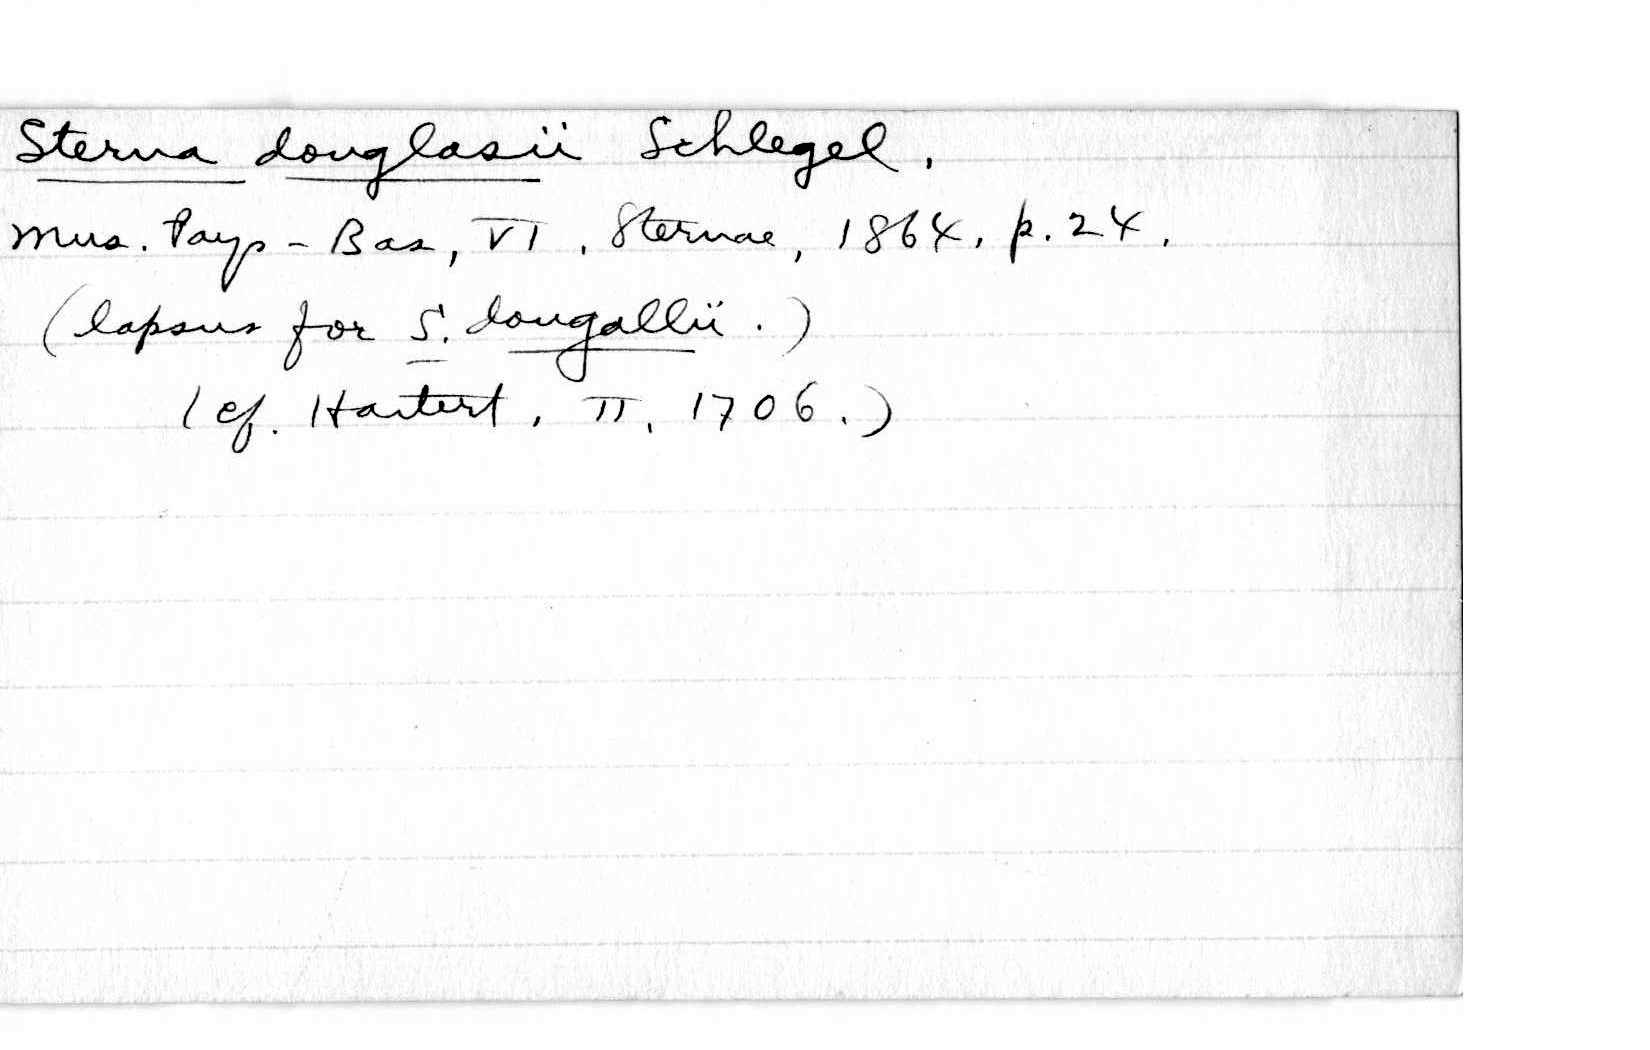 Sterna douglasii Schlegel.
Mus. Pays-Bas, VI, Sternae, 1864, p. 24.
(lapsus for S. dougallii.)
(cf. Hartert, II, 1706.)